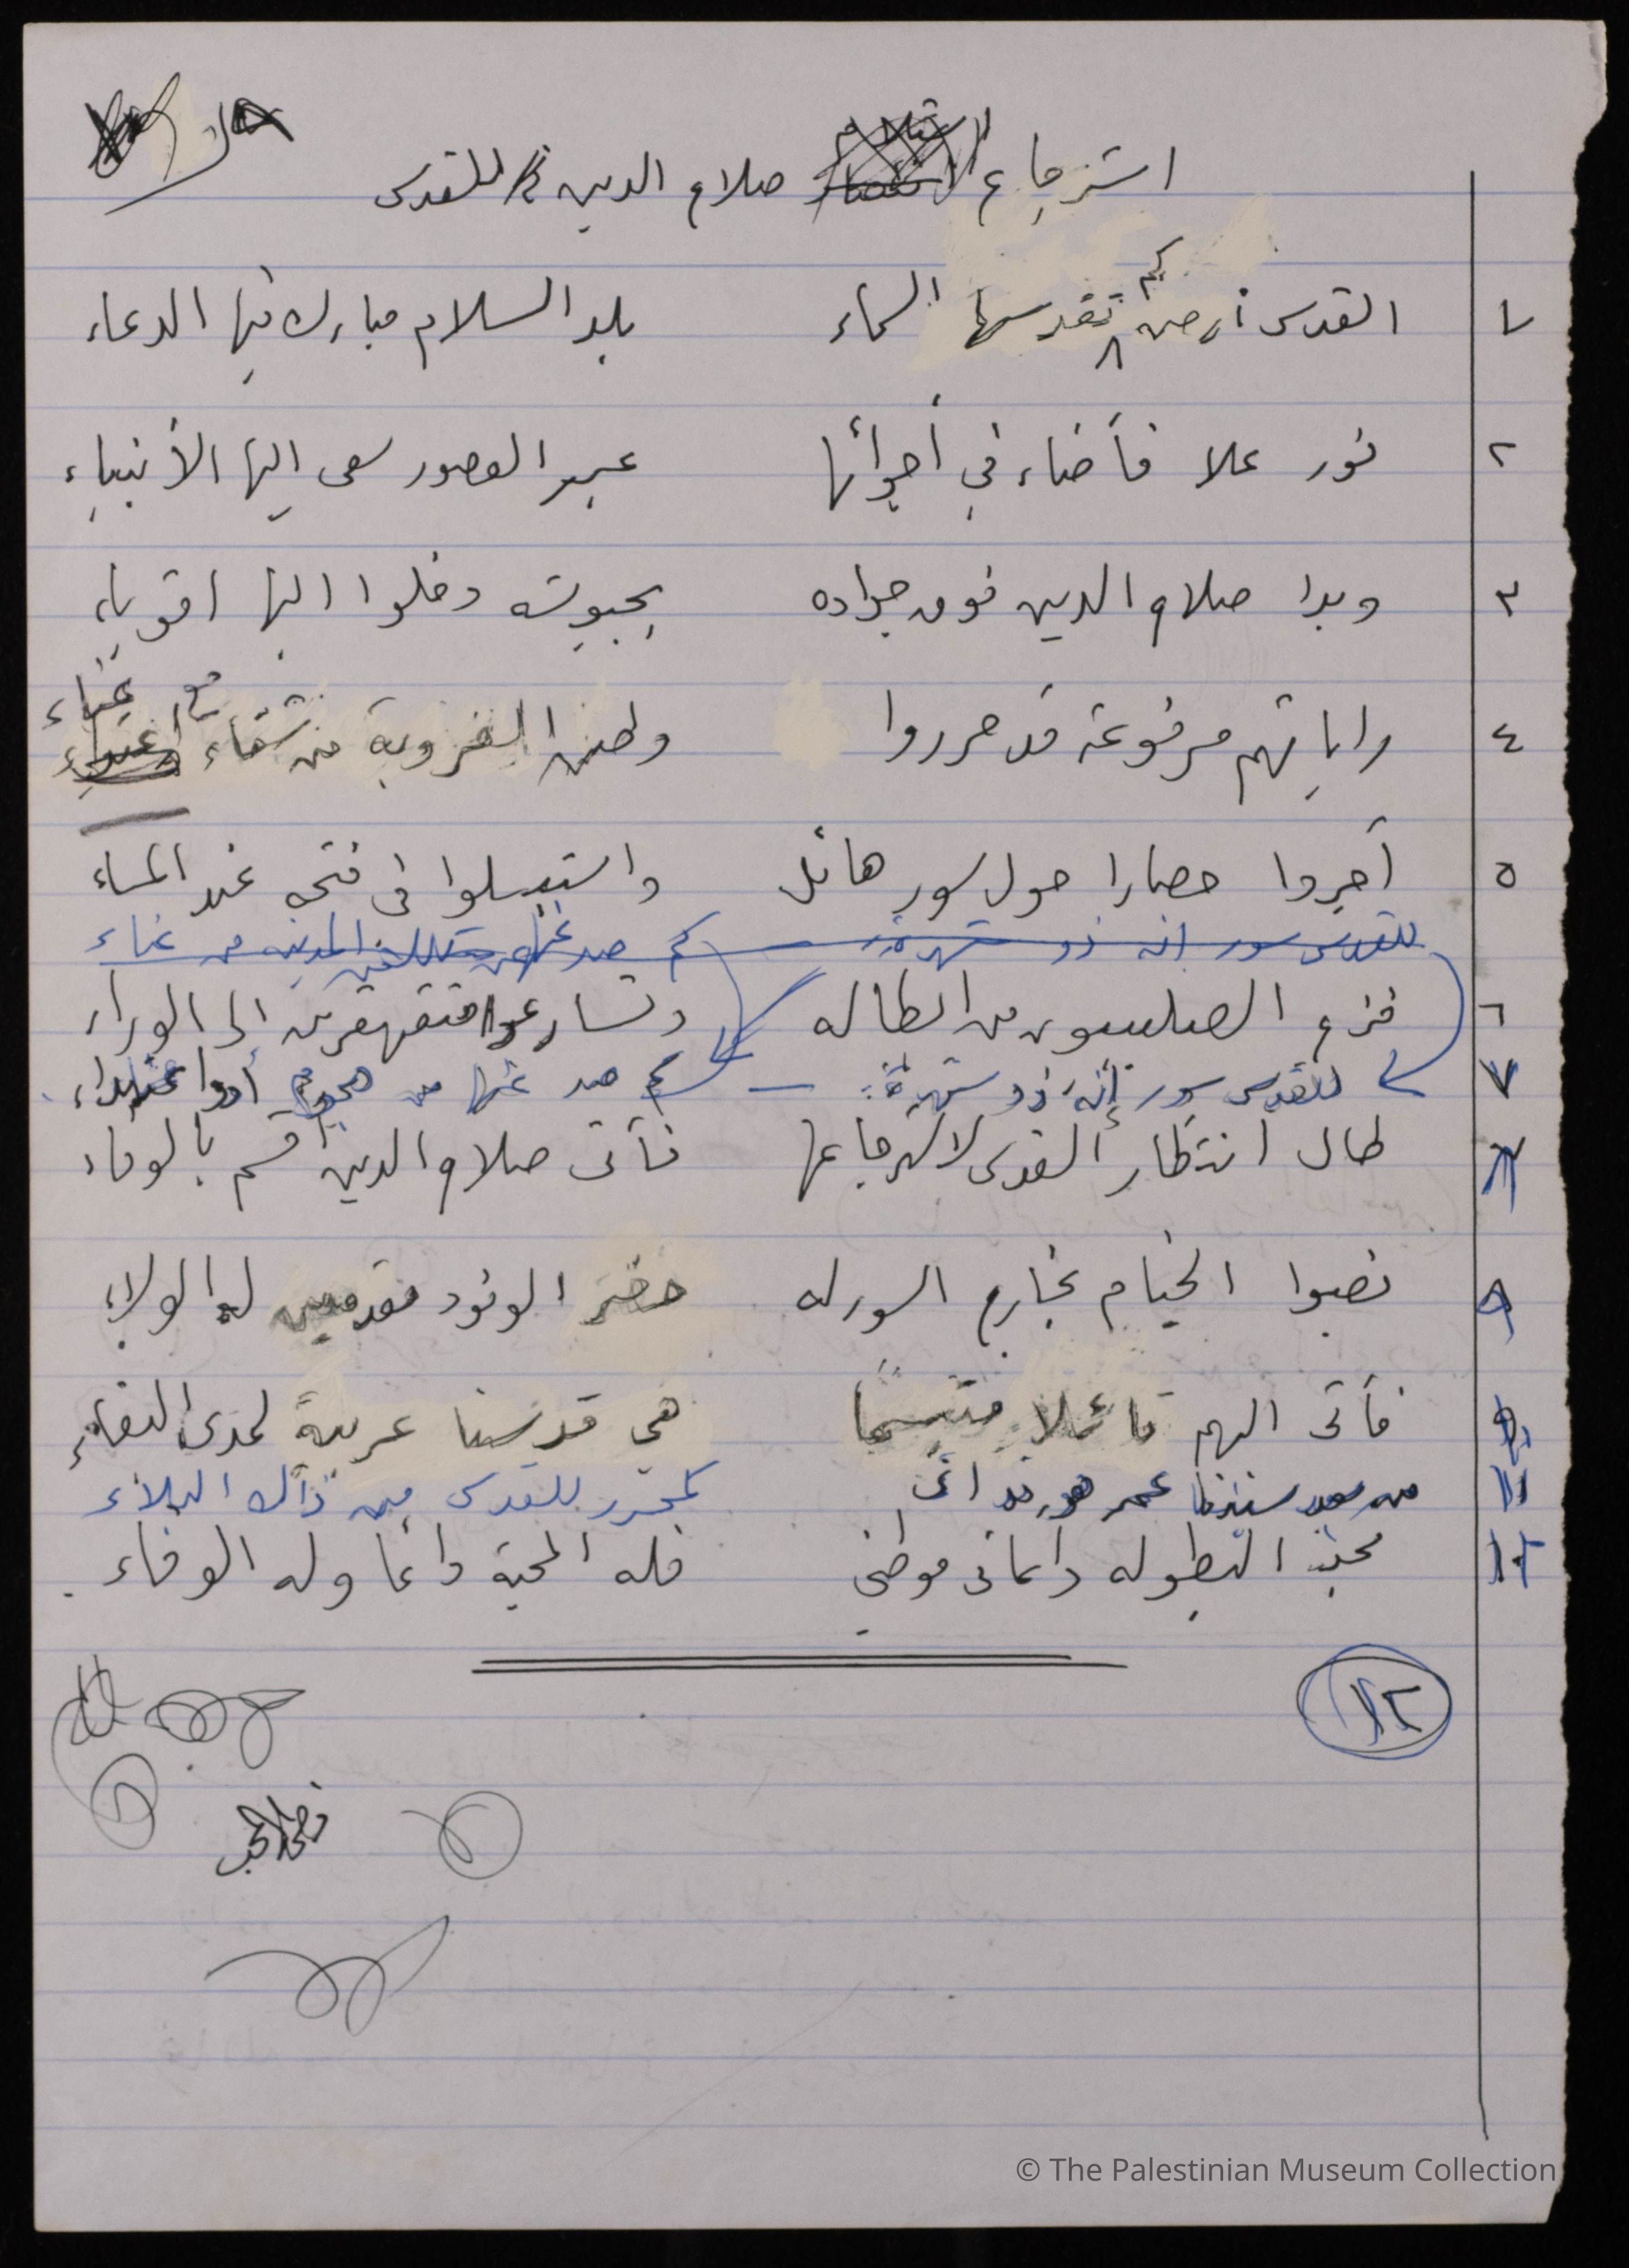 استرجاع صلاح الدين للقدس
١ القدس أرض كم تقدسها السماء بلد السلام مبارك فيها الدعاء
٢ نور علا فأضاء في أجوائها عبر العصور سعى اليها الأنبياء
٣ وبدا صلاح الدين فوق جواده بجيوشه دخلوا اليها اقوياء
٤ راياتهم مرفوعة قد حرروا وطن العروبة من شقاء
٥ أجروا حصارا حول سور هائل واستبسلوا في فتحه عند المساء
للقدس سور انه ذو شهرة كم صد عنها المدينة من عناء
٦ فزع الصليبيون من ابطاله وتسارعوا متقهقرين الى الوراء
٧ للقدس سور إنه ذو شهرة كم صد عنها من هجوم أو اعتداء
طال انتظار القدس لاسترجاعها فأتى صلاح الدين اقسم بالوفاء
٩ نصبوا الخيام بخارج السور له حضر الوفود مقدمين له الولاء
فأتى اليهم قائلا مبتسما هي قدسنا عربية لمدى البقاء
١١ من بعد سيدنا عمر هو قد اتى كمحرر للقدس من ذاك البلاء
١٢ نحب البطولة دائما في موطني فله المحبة دائما وله الوفاء
١٢
© The Palestinian Museum Collection